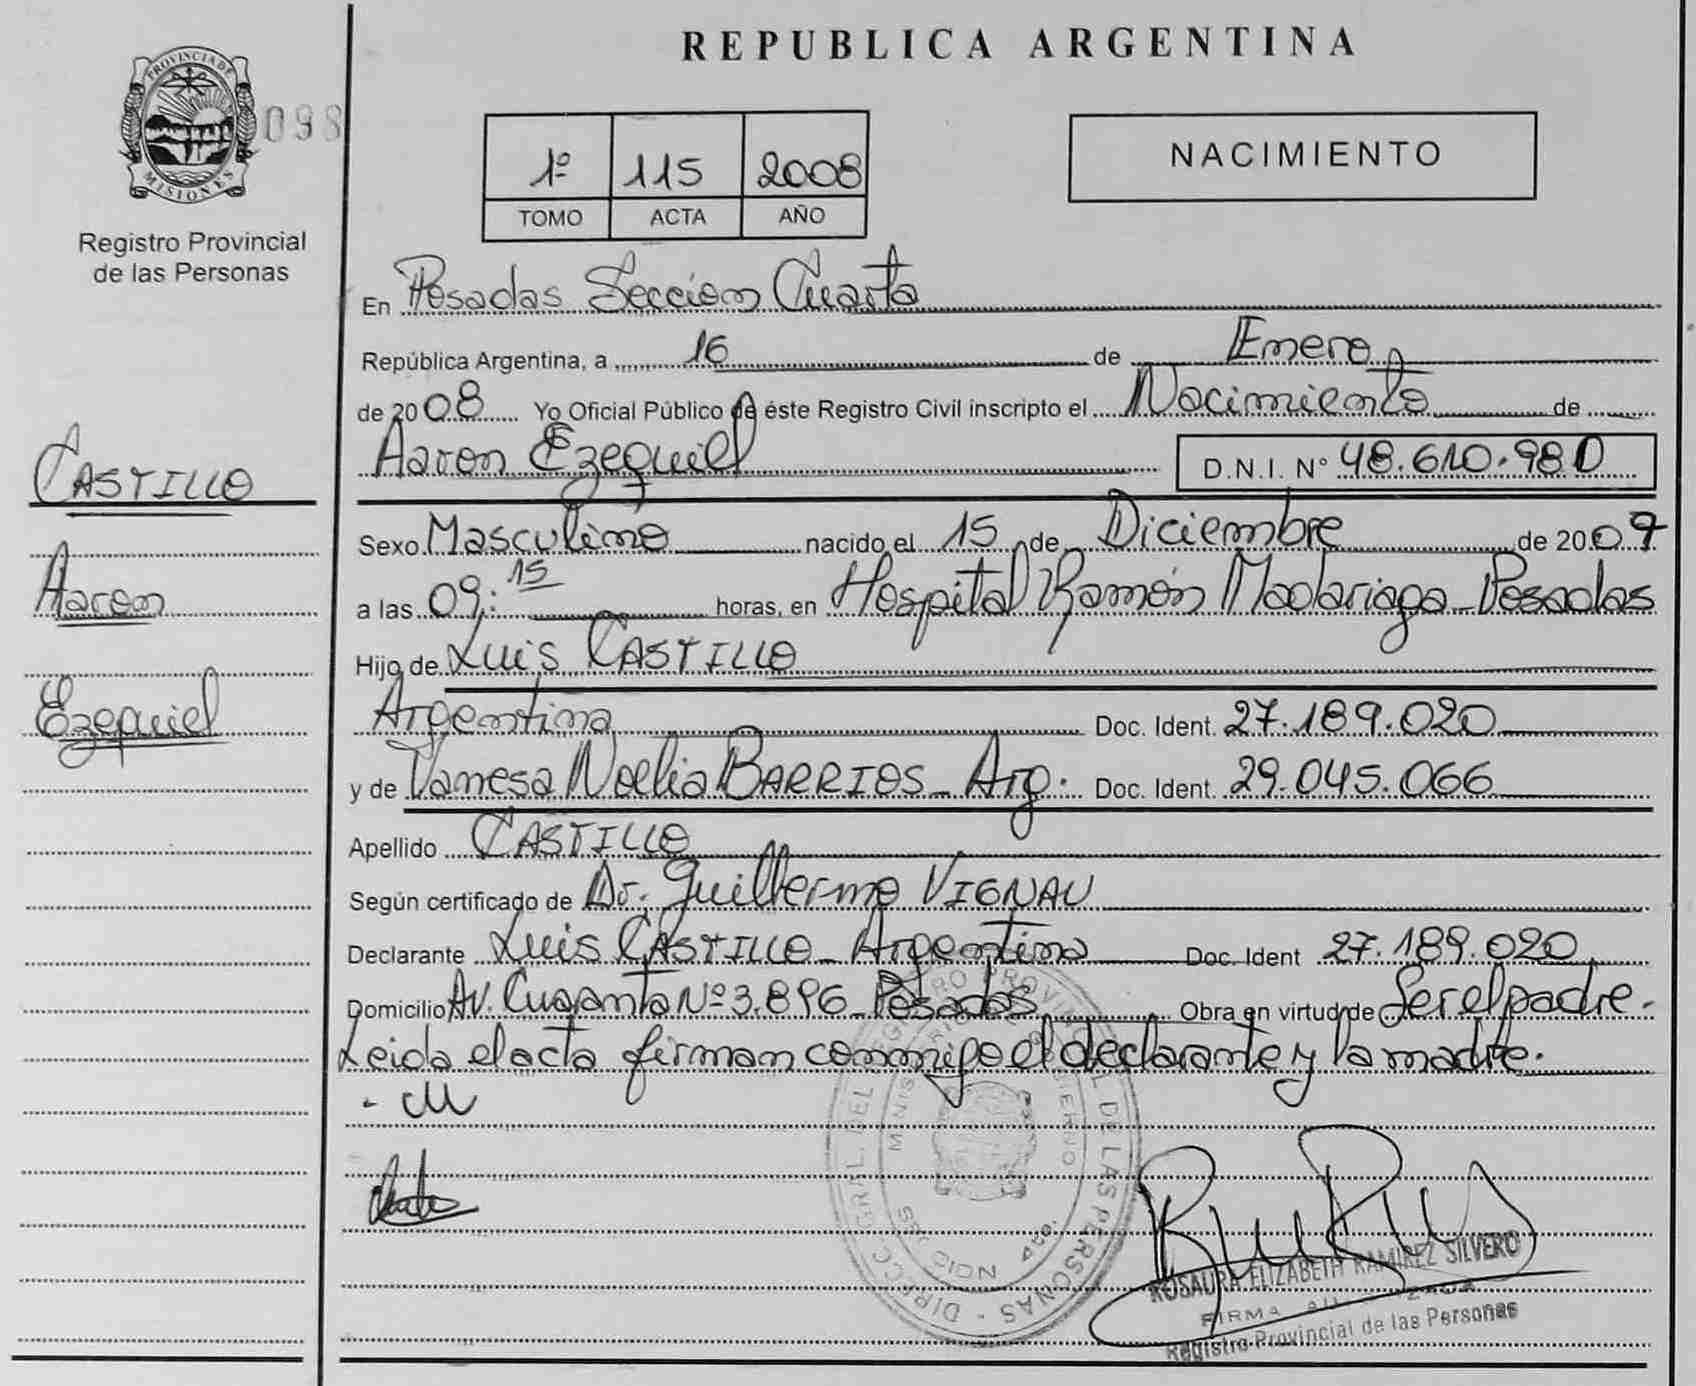 REPUBLICA ARGENTINA
PROVINCIA DE
MISIONES
098
Registro Provincial
de las Personas
1º 115 2008
TOMO ACTA AÑO
NACIMIENTO
En Posadas Seccion Cuarta
República Argentina, a 16 de Enero
de 2008 Yo Oficial Público de éste Registro Civil inscripto el Nacimiento de
Aaron Ezequiel D.N.I. Nº 48.610.980
CASTILLO
Aaron
Ezequiel
Sexo Masculino nacido el 15 de Diciembre de 2007
a las 09:15 horas, en Hospital Ramón Madariaga - Posadas
Hijo de Luis CASTILLO
Argentino Doc. Ident. 27.189.020
y de Vanesa Noelia BARRIOS - Arg. Doc. Ident. 29.045.066
Apellido CASTILLO
Según certificado de Dr. Guillermo VIGNAU
Declarante Luis CASTILLO - Argentino Doc. Ident 27.189.020
Domicilio Av. Cuaranta Nº 3.896 - Posadas Obra en virtud de Ser el padre.
Leida el acta firman conmigo el declarante y la madre.
ROSAURA ELIZABETH RAMIREZ SILVERO
FIRMA
Registro Provincial de las Personas